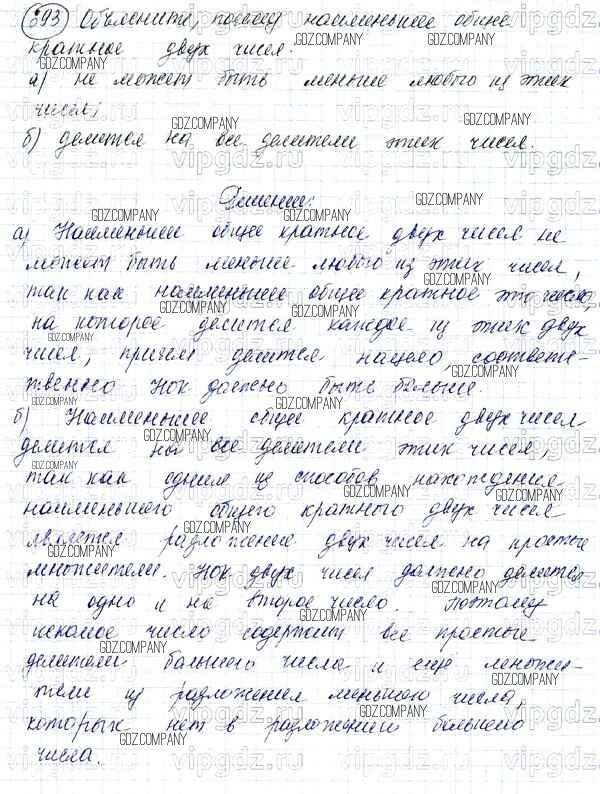 893 Объясните, почему наименьшее общее
кратное двух чисел:
а) не может быть меньше любого из этих
чисел;
б) делится на все делители этих чисел.
Решение:
а) Наименьшее общее кратное двух чисел не
может быть меньше любого из этих чисел,
так как наименьшее общее кратное это число,
на которое делится каждое из этих двух
чисел, причем делится нацело, соответс-
твенно НОК должно быть больше.
б) Наименьшее общее кратное двух чисел
делится на все делители этих чисел,
так как одним из способов нахождения
наименьшего общего кратного двух чисел
является разложение двух чисел на простые
множители. НОК двух чисел должно делится
на одно и на второе число. Поэтому
искомое число содержит все простые
делители большего числа и ещё множи-
тели из разложения меньшего числа,
которых нет в разложении большего
числа.
GDZ.COMPANY
vipgdz.ru